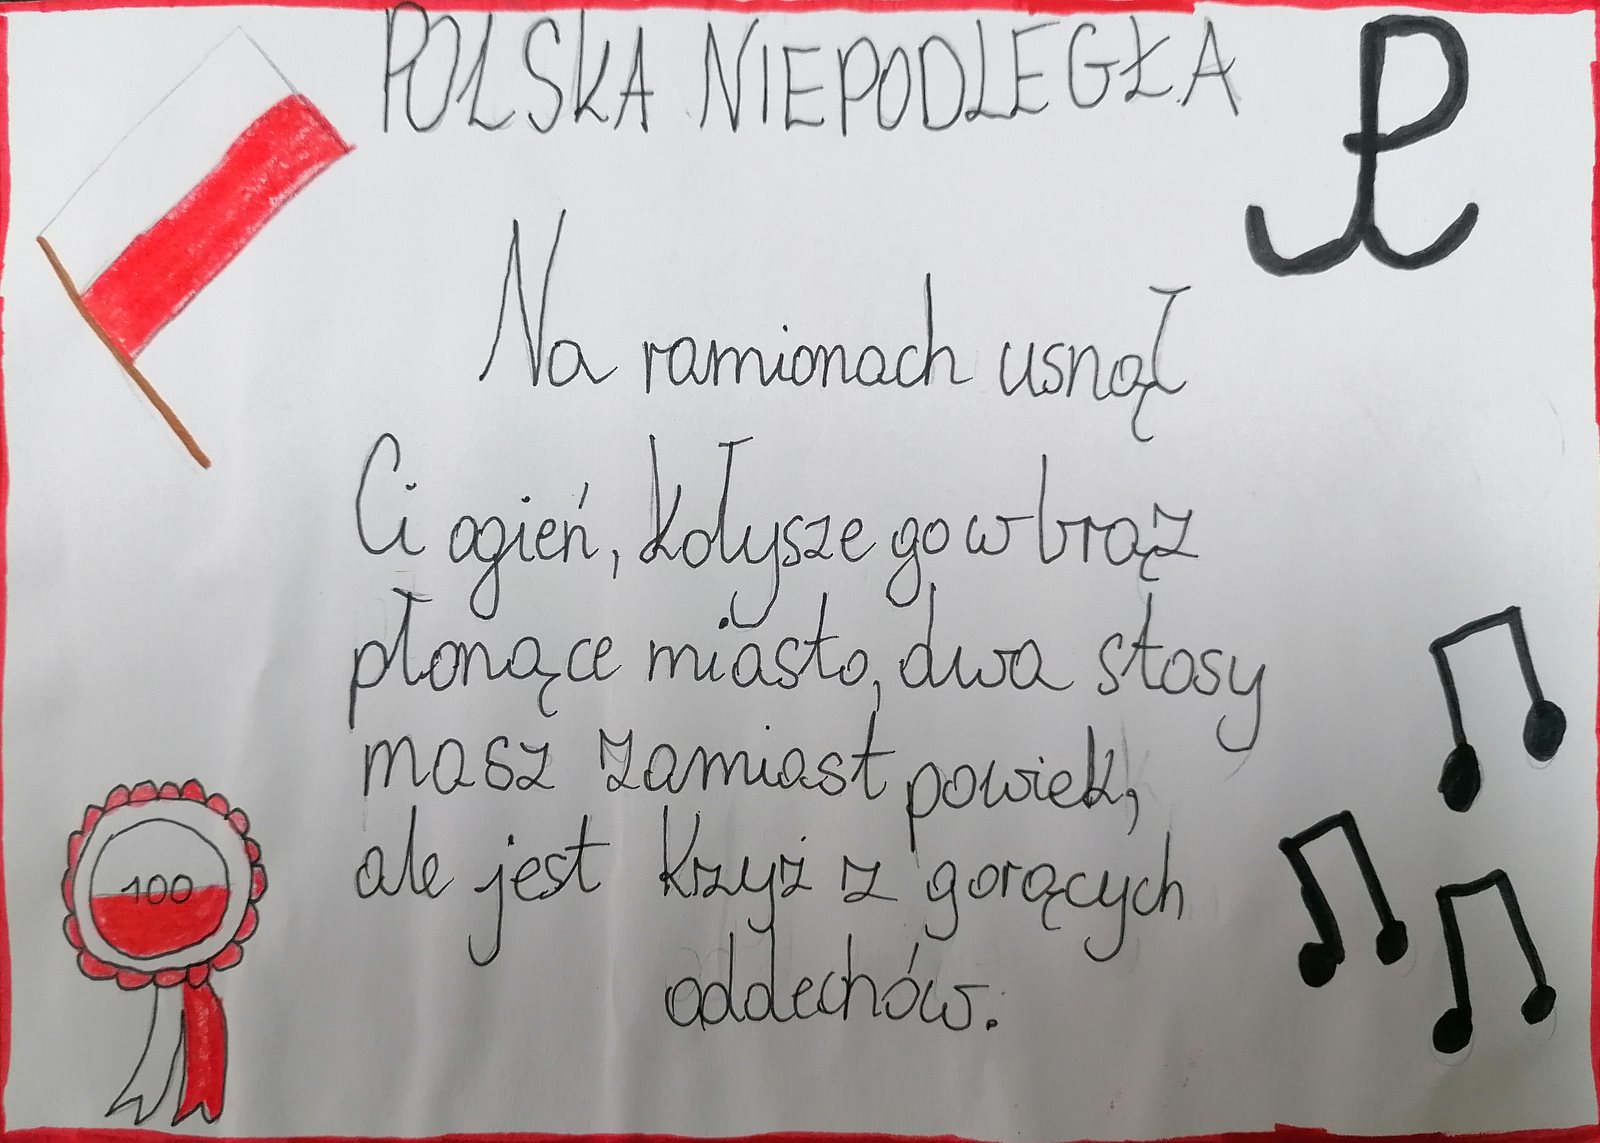 POLSKA NIEPODLEGŁA
Na ramionach usnął
Ci ogień, kołysze go w brąz
płonące miasto, dwa stosy
masz zamiast powiek,
ale jest krzyż z gorących
oddechów.
100